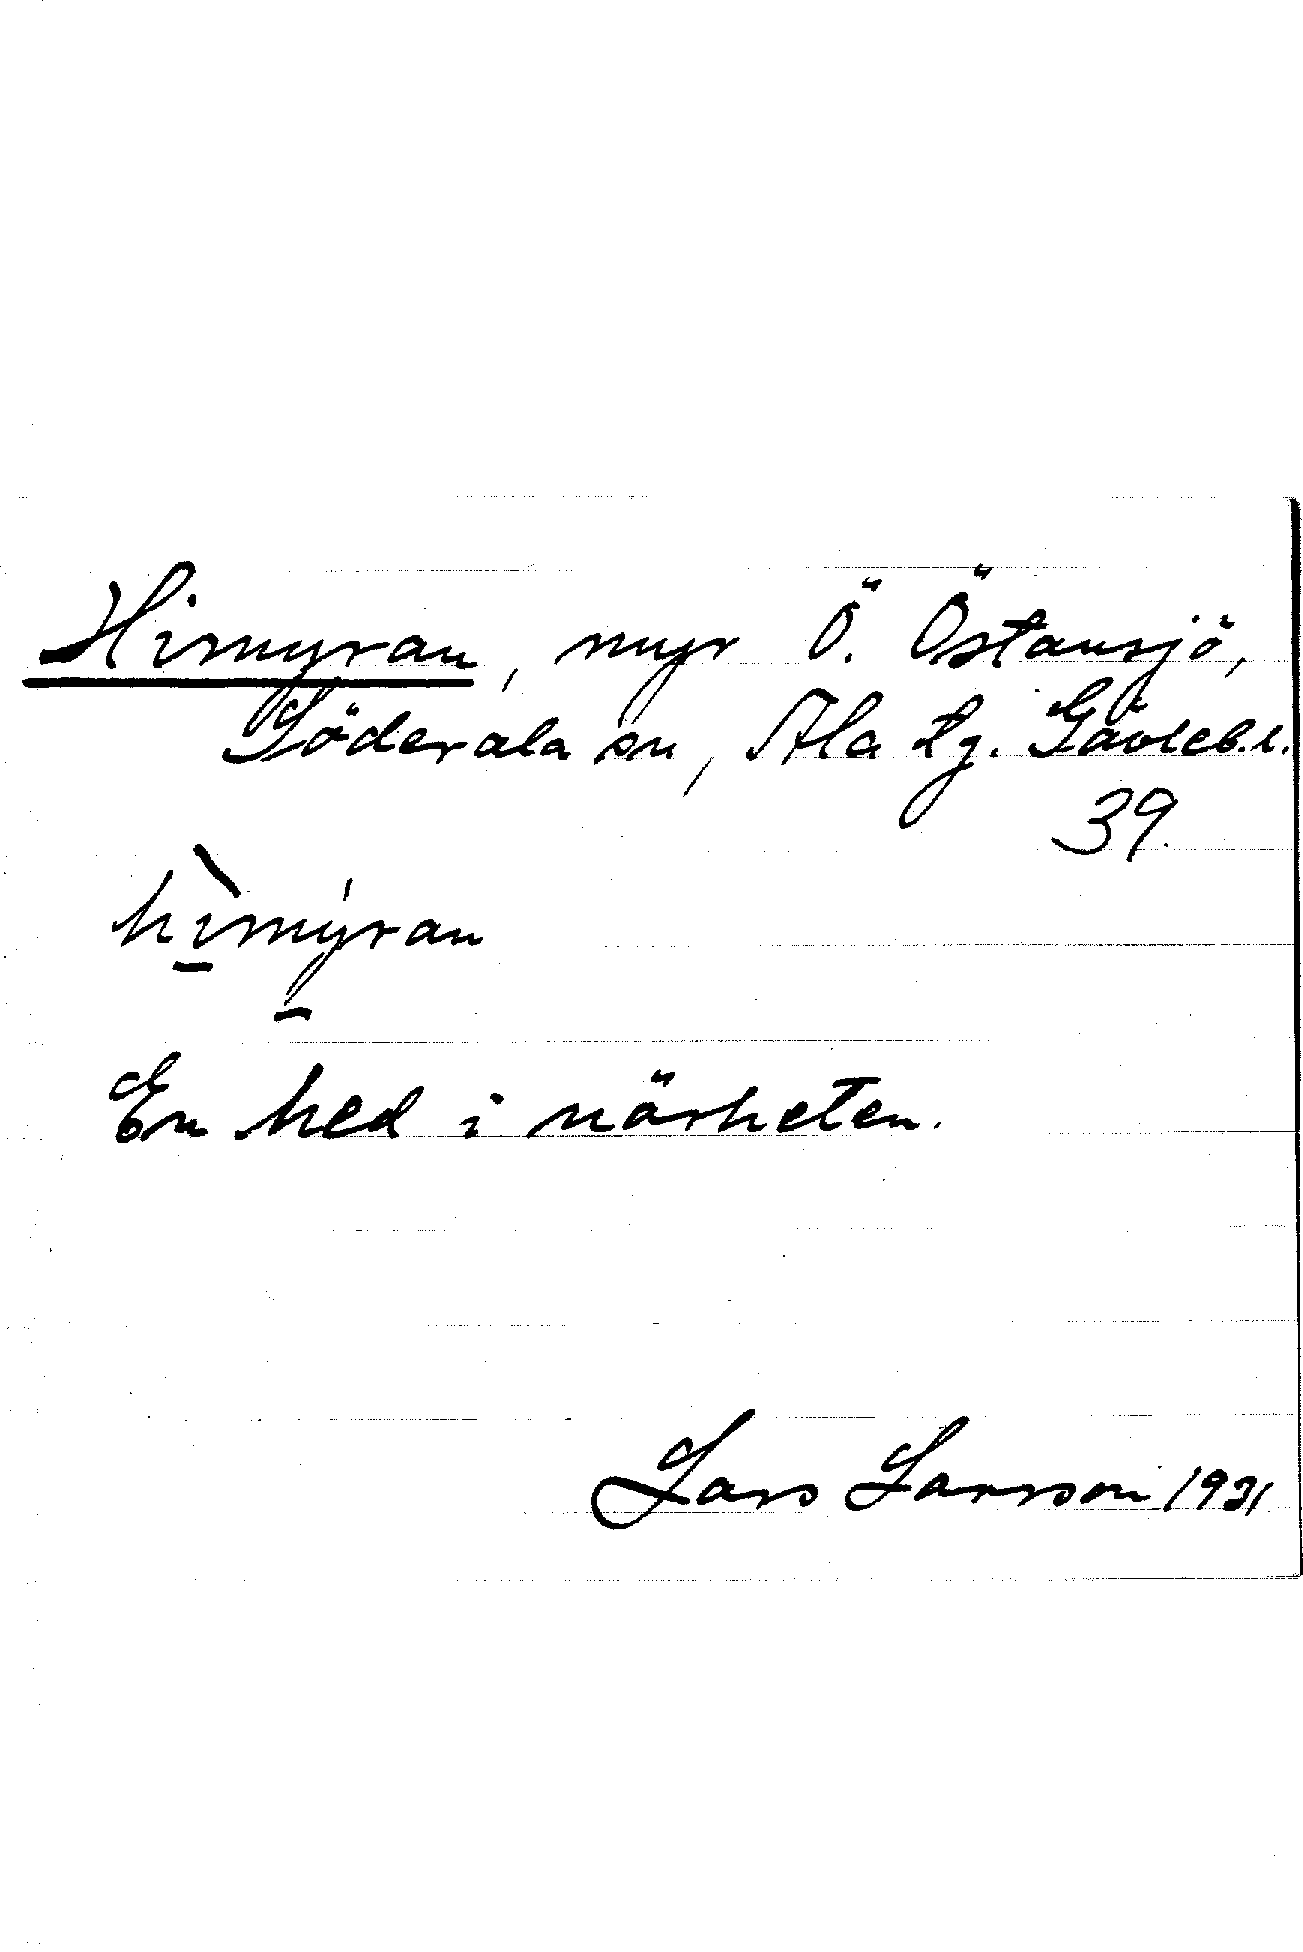 Himyran, myr Ö. Östansjö,
Söderala sn, Ala tg. Gävleb.l.
39
hı̀mýran
En hed i närheten.
Lars Larsson 1931